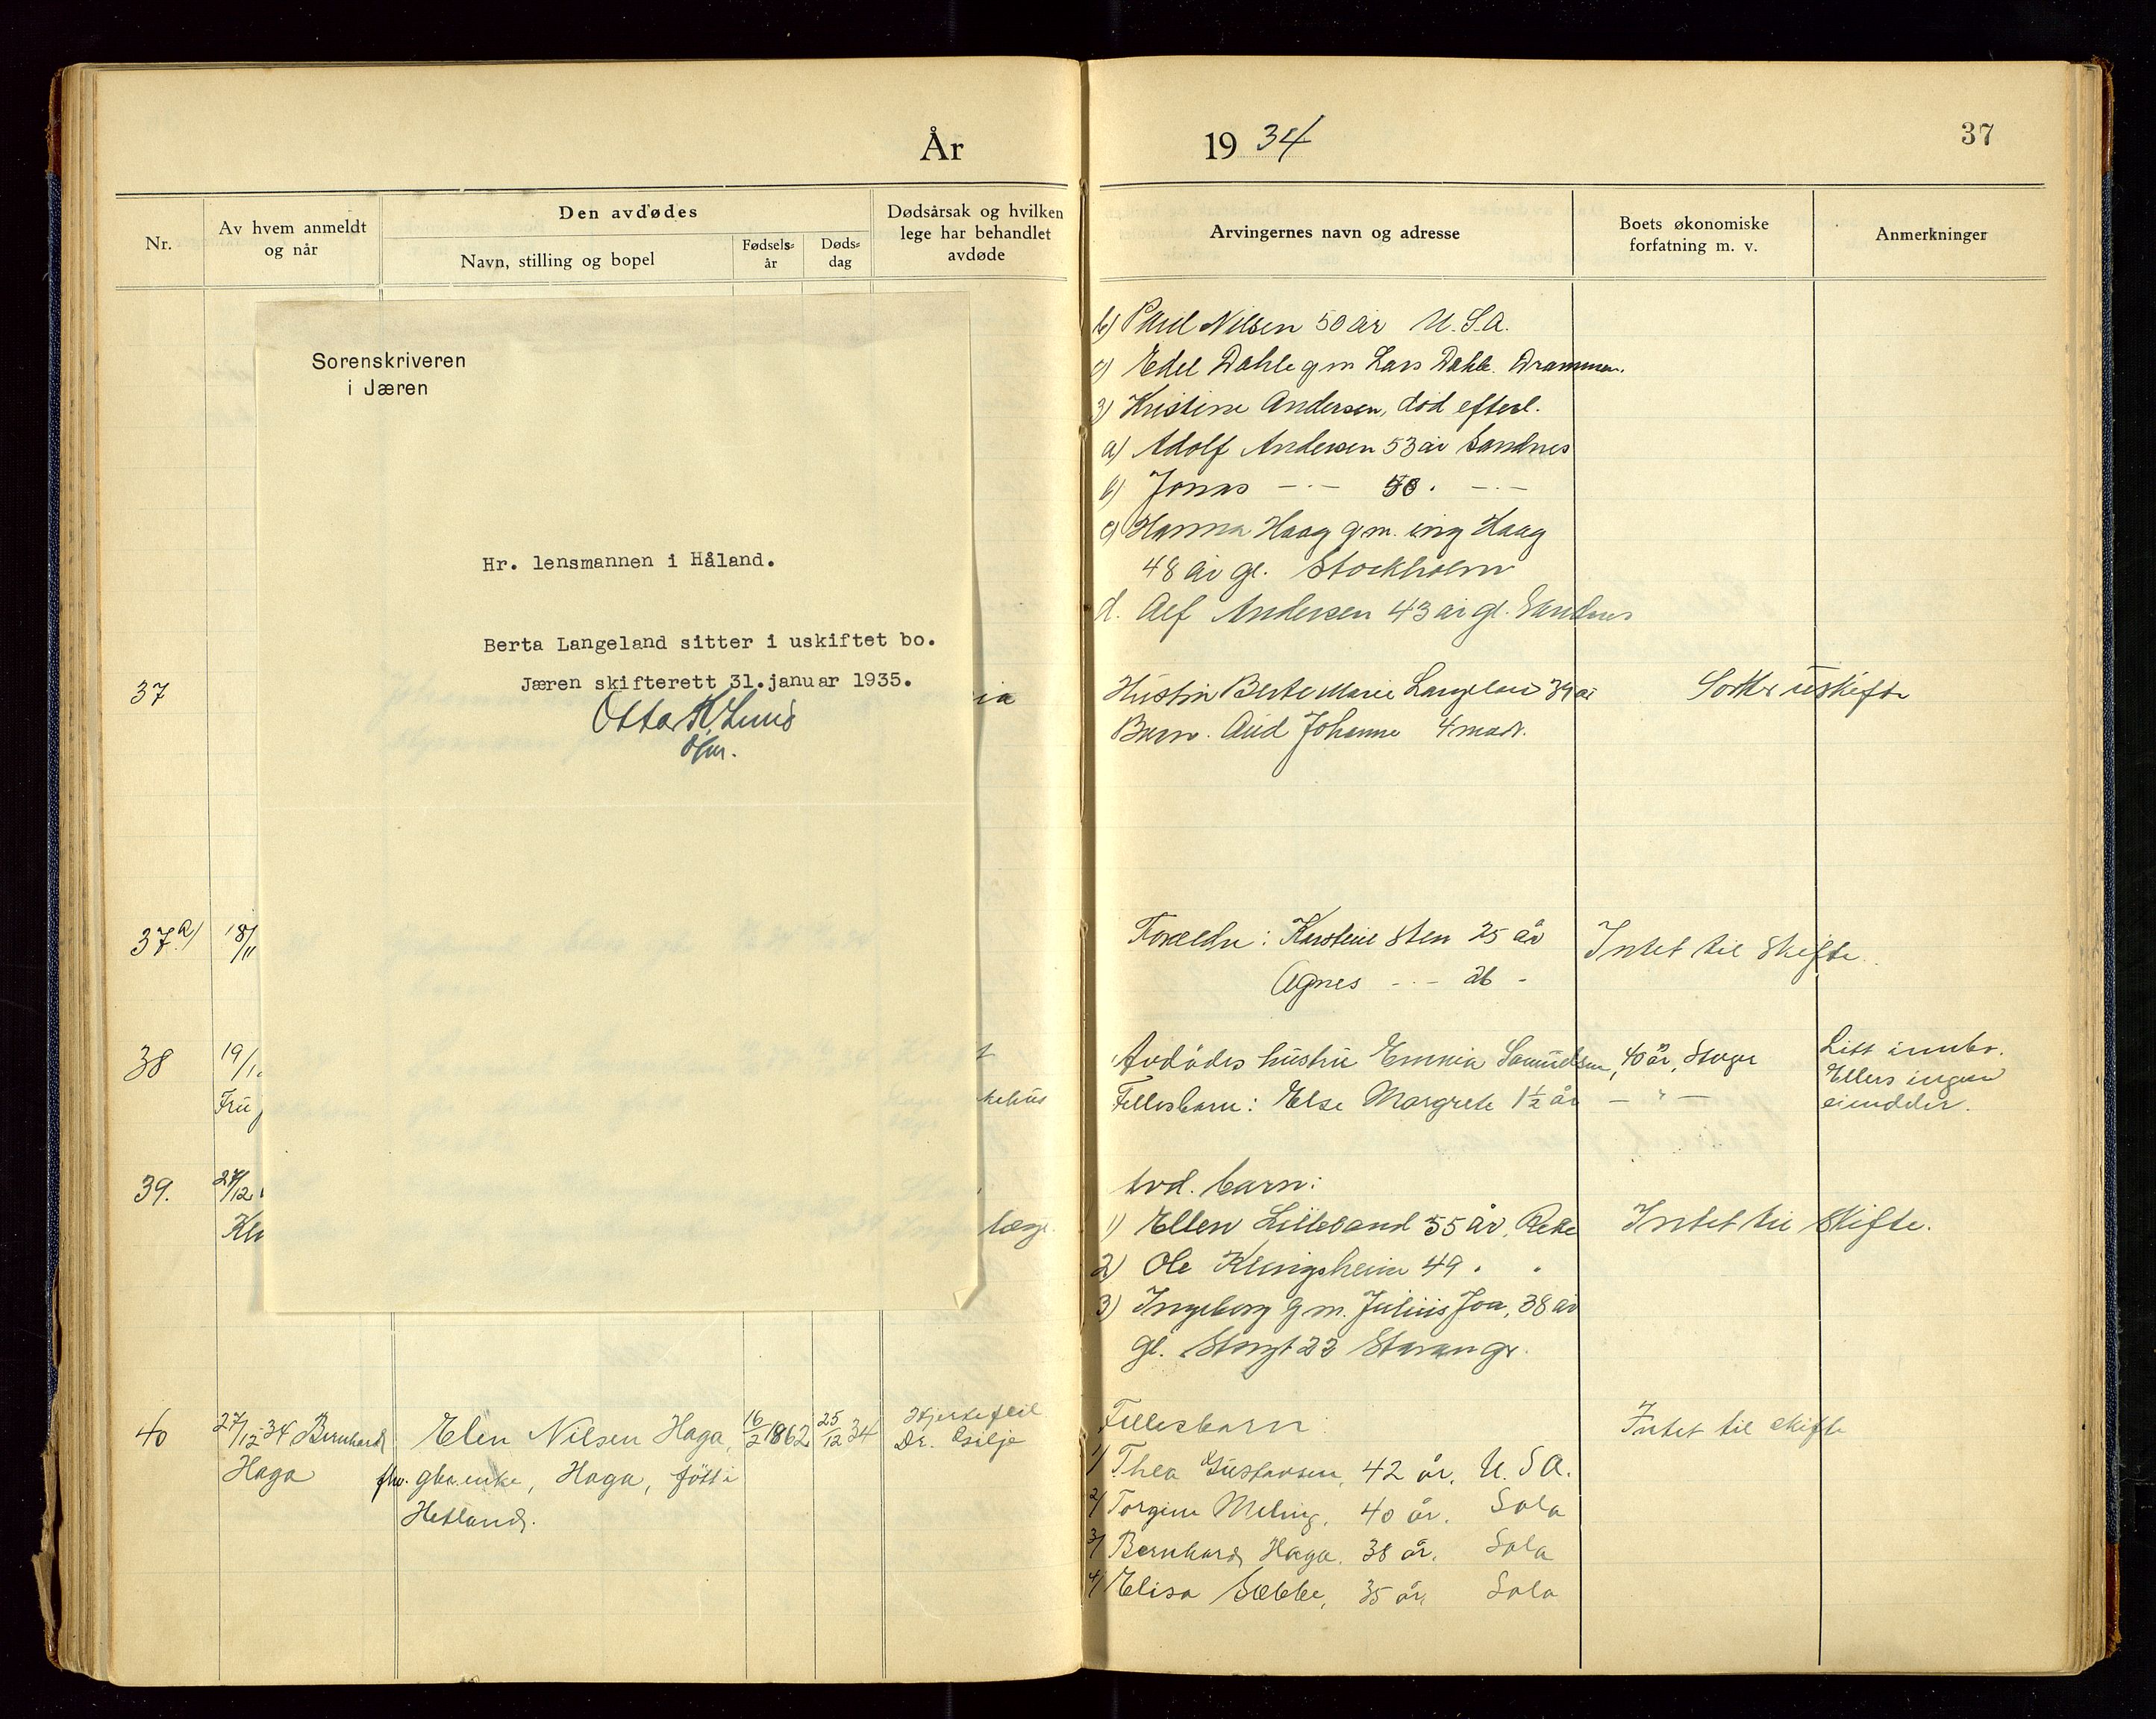 År
1934
37
Nr.
Av hvem anmeldt
og når
Den avdødes
Navn, stilling og bopel
Fødsels-
år
Døds-
dag
Dødsårsak og hvilken
lege har behandlet
avdøde
Arvingernes navn og adresse
Boets økonomiske
forfatning m. v.
Anmerkninger
Sorenskriveren
i Jæren
Hr. lensmannen i Håland.
Berta Langeland sitter i uskiftet bo.
Jæren skifterett 31.januar 1935.
b) Paul Nilsen 50 år U.S.A.
c) Edel Dahle gm Lars Dahle. Drammen.
3) Kristine Andersen, död efterl.
a) Adolf Andersen 53 år Sandnes
b) Jonas -·- 50. -·-
c) Hanna Haag gm. ing Haag
48 år gl. Stockholm
d. Alf Andersen 43 år gl. Sandnes
37
Hustru Berte Marie Langeland 39 år
uskifte
Barn. Aud Johanne 4 mndr.
37 a)
18/11
Foreldre: Karsteine Sten 25 år
Intet til skifte.
Agnes -·- 26 -
38
19/1
Avdödes hustru Emma Samuelsen, 40 år, Stvgr
Litt innbo.
Ellers ingen
eiendeler.
Fru
kehus
Fellesbarn: Else Margrete 1½ år - " -
39.
27/12
Avd. barn:
1) Ellen Lilleland 55 år, Reke
Intet til skifte.
2) Ole Klingsheim 49 . .
3) Ingeborg gm. Julius Joa, 38 år
gl. Storgt 23 Stavangr.
40
27/12-34 Bernhard
Haga
Elen Nilsen Haga,
fhv. gbr.enke, Haga, født i
Hetland.
16/2 1862
25/12 34
Hjertefeil
Dr. Gilje
Fellesbarn:
Intet til skifte
1/ Thea Gustavsen, 42 år, U.S.A.
2/ Torgine Meling, 40 år. Sola
3/ Bernhard Haga. 38 år. Sola
4/ Elisa Sæbbe, 35 år, Sola